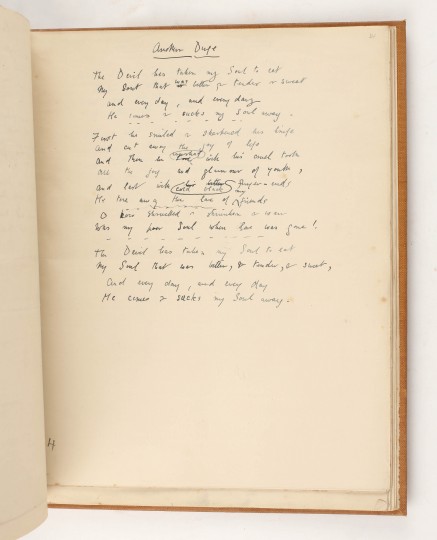 Another Dirge
The Devil has taken my Soul to eat
My Soul that was bitter & tender & sweet
and every day, and every day
He comes & sucks my Soul away.
First he smiled & sharpened his knife
and cut away the joy of life
And then he with his cruel teeth
All the joy and glamour of youth,
And last with cold black finger-ends
He tore away the love of my friends
O how shrivelled & shrunken & wan
Was my poor Soul when love was gone!
The Devil has taken my Soul to eat
My Soul that was bitter, & tender, & sweet,
And every day, and every day
He comes & sucks my Soul away.
4